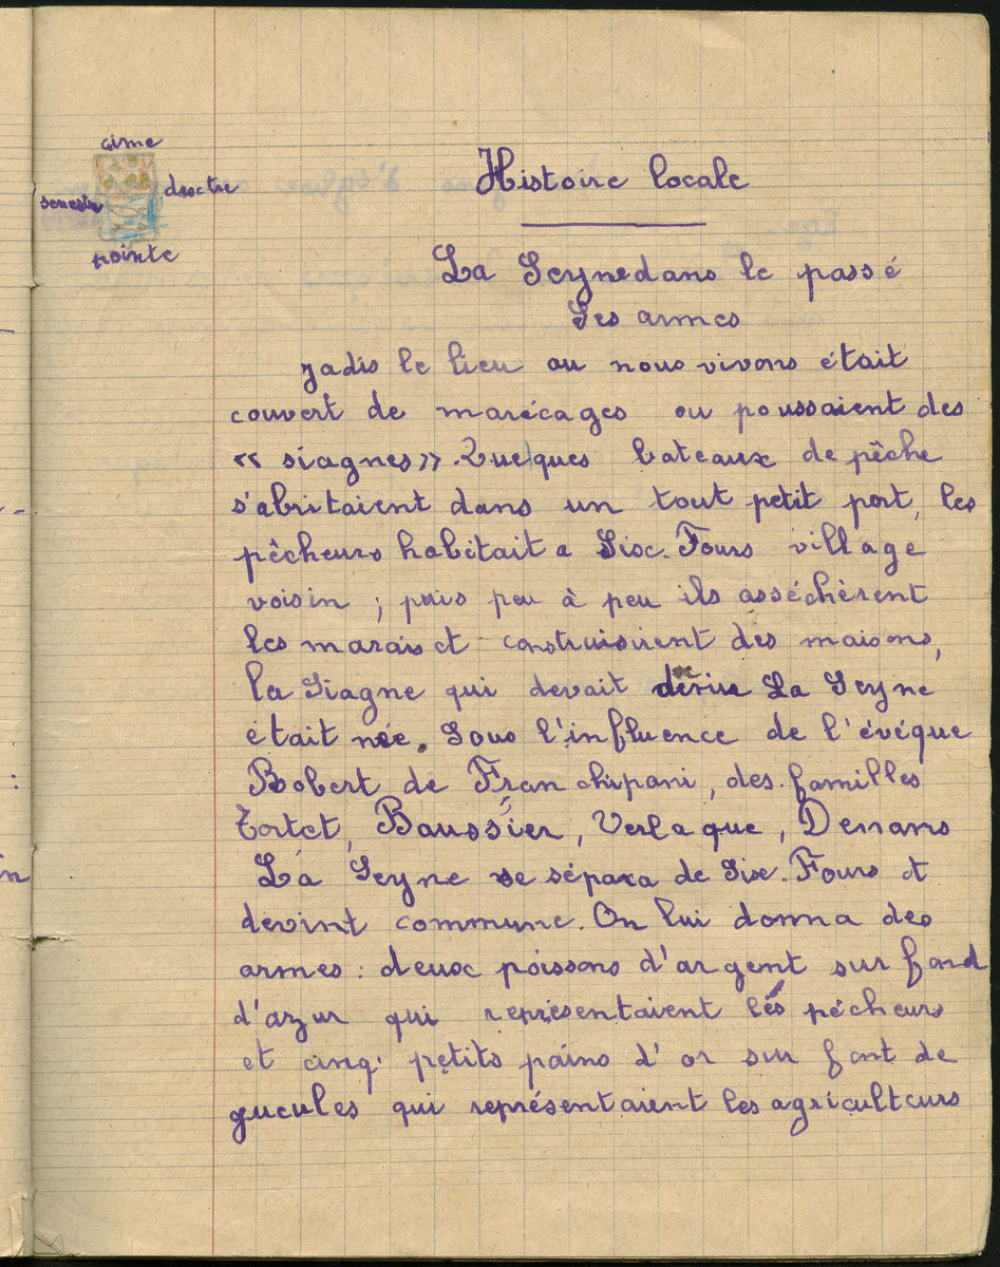 cime
dsoctre
senesin
pointe
Histoire locale
La Seyne dans le passé
Ses armes
jadis le lieu ou nous vivons était
couvert de marécages ou poussaient des
« siagnes ». Quelques bateaux de pêche
s'abritaient dans un tout petit port, les
pêcheurs habitait a Six-Fours village
voisin ; puis peu à peu ils asséchèrent
les marais et construisirent des maisons,
la Siagne qui devait La Seyne
était née. Sous l'influence de l'évéque
Robert de Franchipani, des familles
Tortet, Baussier, Verlaque, Denans
La Seyne se sépara de Six-Fours et
devint commune. On lui donna des
armes : deux poissons d'argent sur fond
d'azur qui représentaient les pécheurs
et cinq petits pains d'or sur font de
gueules qui représentaient les agriculteurs